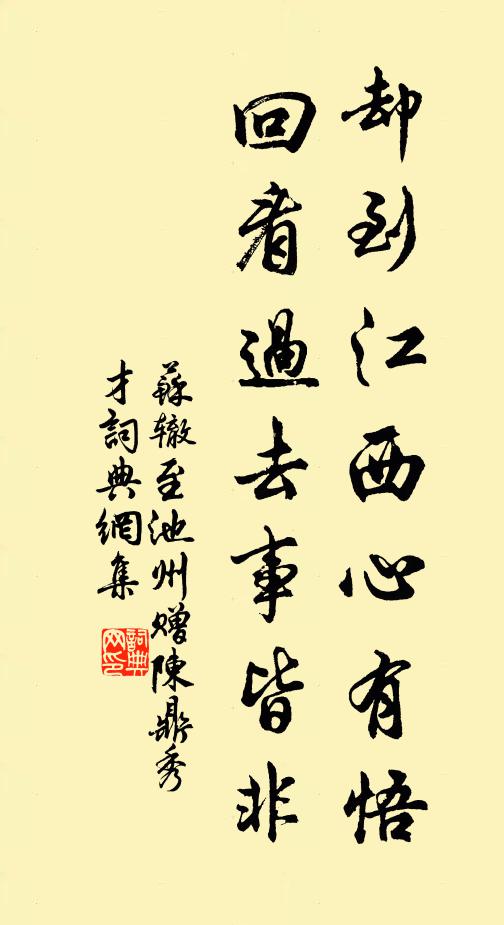 却到江西心有悟
回看過去事皆非
蘇辙至池州赠陳鼎秀
才詞典網集
詞典
网印